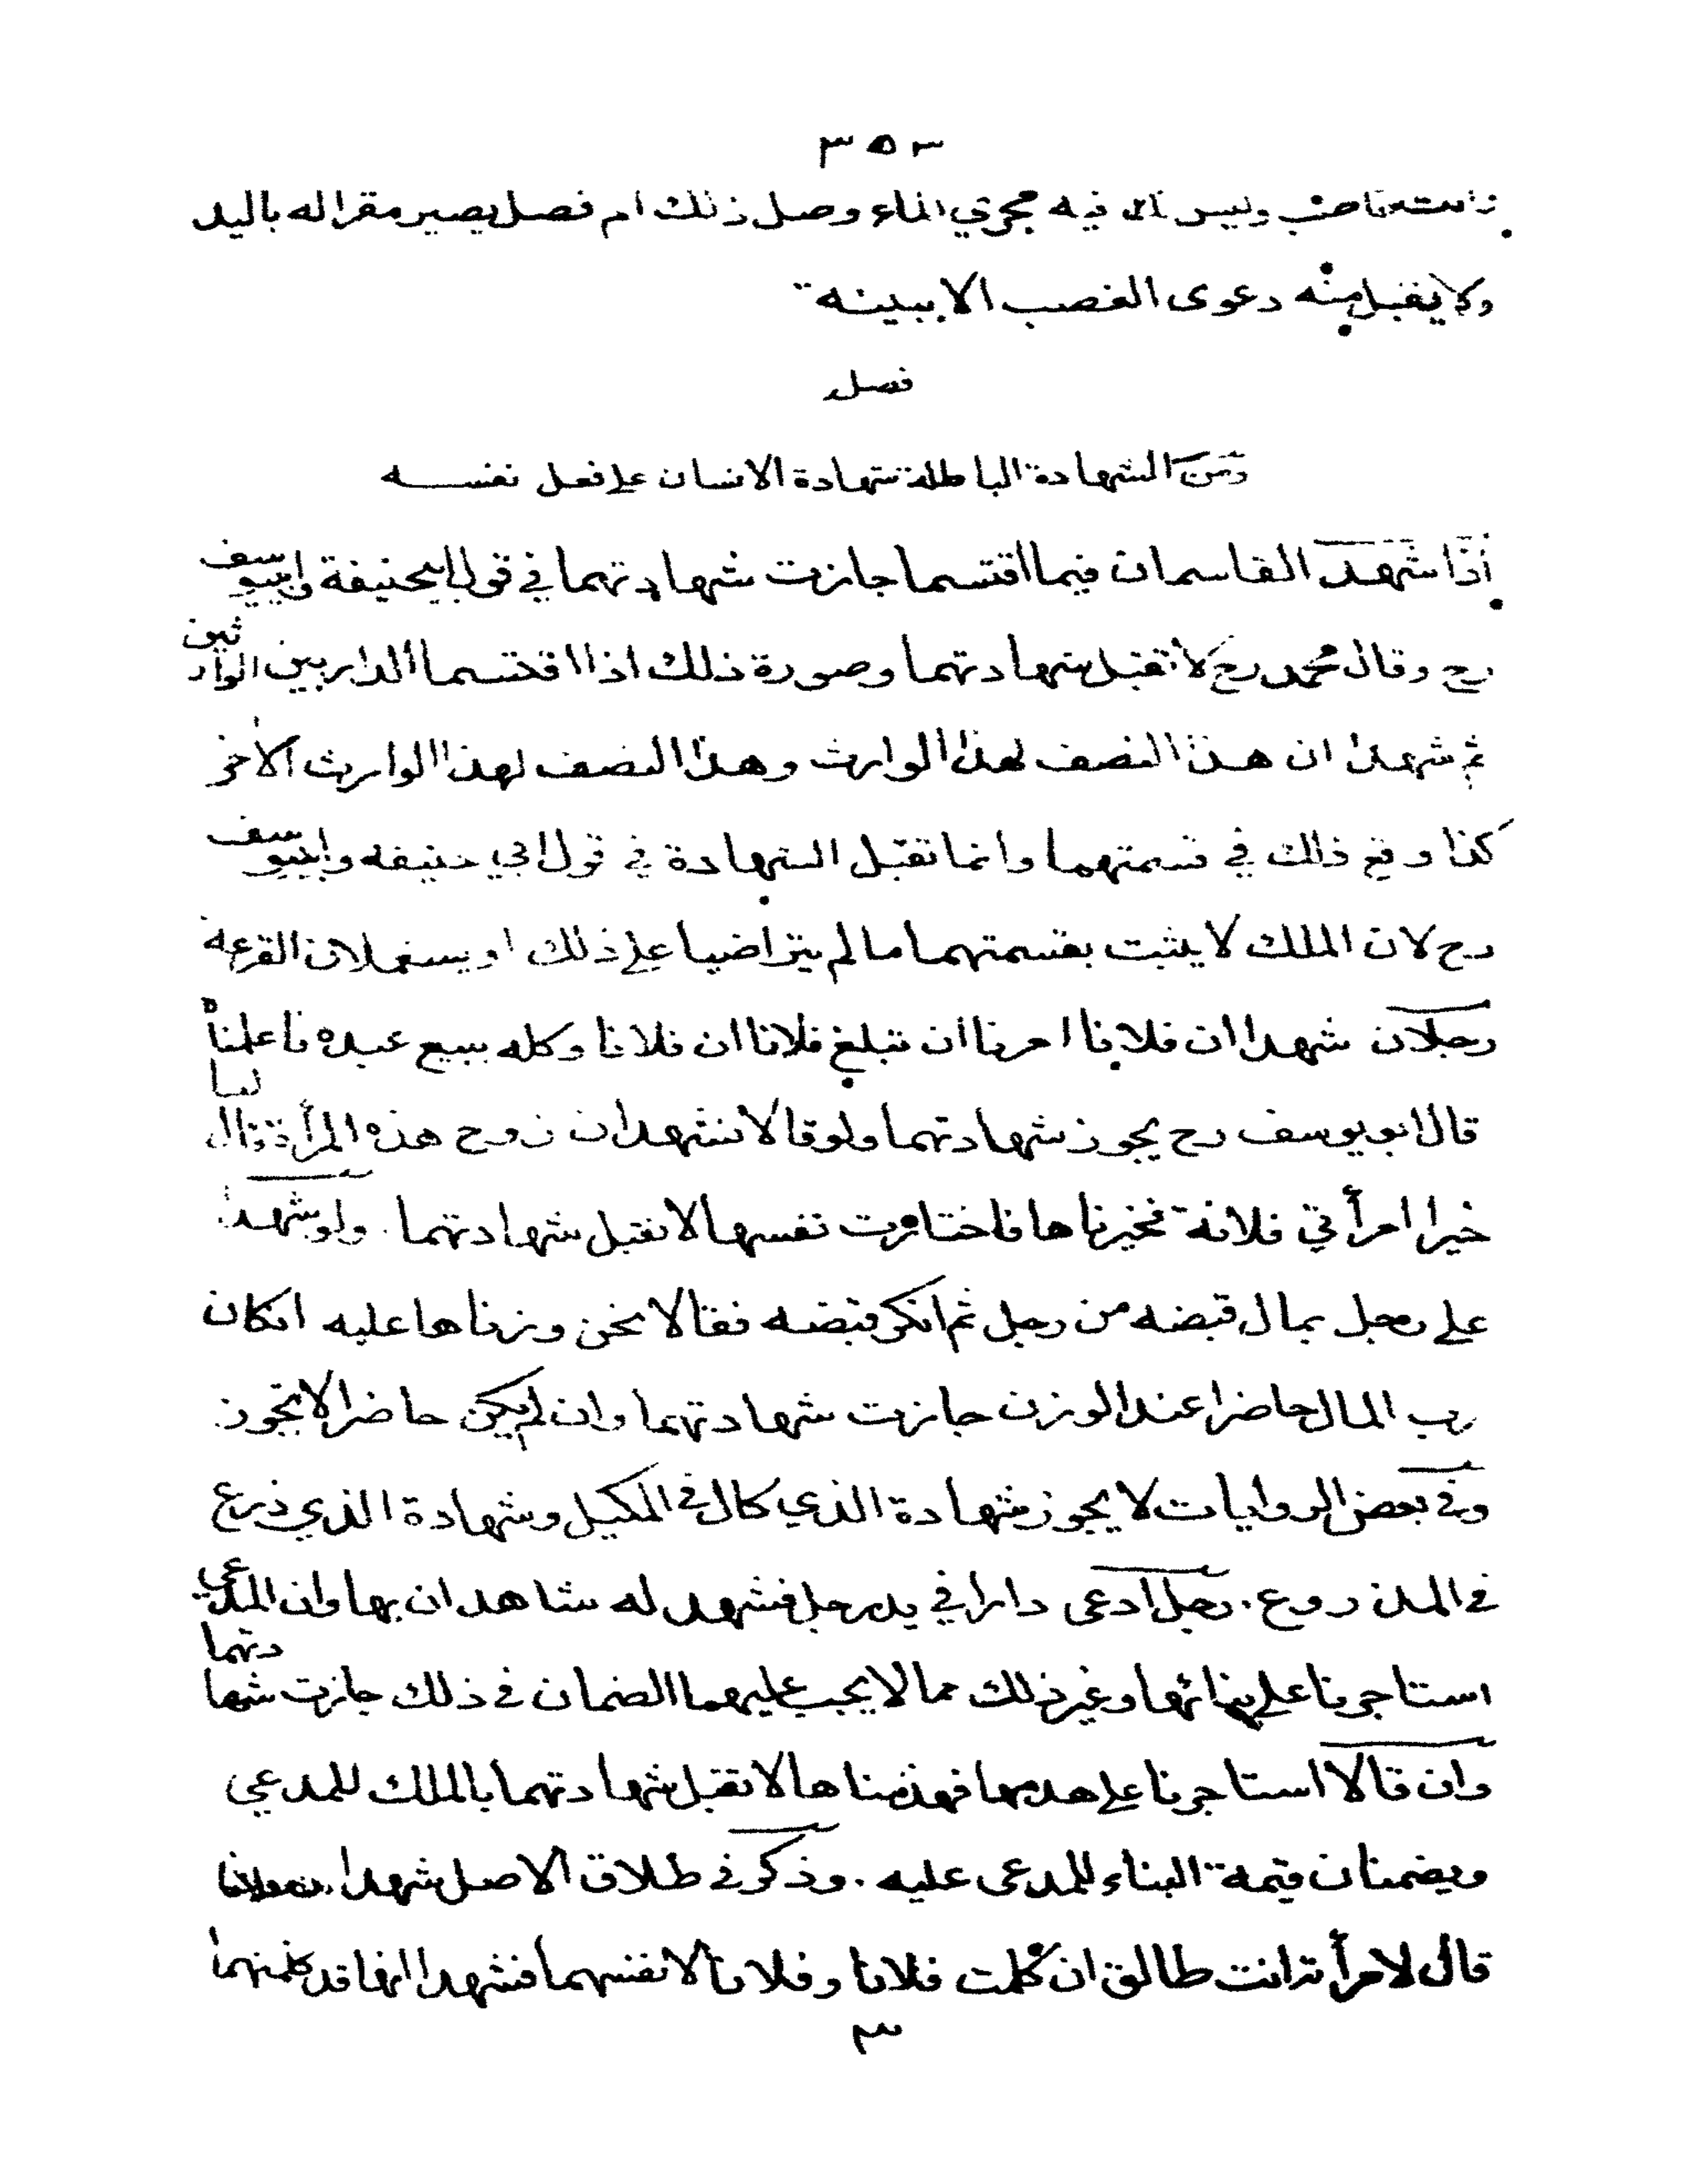 ٣٥٣
وليس لك فيه مجرى الماء وصل ذلك ام فصل يصير مقرا له باليد
ولا يقبل منه دعوى الغصب الا ببينة
فصل
ومن الشهادة الباطلة شهادة الانسان على فعل نفسه
اذا شهد القاسمان فيما اقتسما جازت شهادتهما في قول ابي حنيفة وابي يوسف
رح وقال محمد رح لا تقبل شهادتهما وصورة ذلك اذا اقتسما الدار بين الوارثين
ثم شهدا ان هذا النصف لهذا الوارث وهذا النصف لهذا الوارث الاخر
كذا وقع ذلك في قسمتهما وانما تقبل الشهادة في قول ابي حنيفه وابي يوسف
رح لان الملك لا يثبت بقسمتهما ما لم يتراضيا على ذلك او يستعملان القرعة
رجلان شهدا ان فلانا امرنا ان نبلغ فلانا ان فلانا وكله ببيع عبده فاعلمناه
قال ابو يوسف رح يجوز شهادتهما ولو قالا نشهد ان زوج هذه المرأة قال لنا
خيرا امرأتي فلانة فخيرناها فاختارت نفسها لا تقبل شهادتهما. ولو شهدا
على رجل بمال قبضه من رجل ثم انكر قبضه فقالا نحن وزناها عليه ان كان
رب المال حاضرا عند الوزن جازت شهادتهما وان لم يكن حاضرا لا تجوز
وفي بعض الروايات لا يجوز شهادة الذي كال في المكيل وشهادة الذي ذرع
في المذروع. رجل ادعى دارا في يد رجل فشهد له شاهدان بها وان المدعي
استاجرنا على بنائها وغير ذلك مما لا يجب عليهما الضمان في ذلك جازت شهادتهما
وان قالا استاجرنا على هدمها فهدمناها لا تقبل شهادتهما بالملك للمدعي
ويضمنان قيمة البناء للمدعى عليه. وذكر في طلاق الاصل شهدا
قال لامرأته انت طالق ان كلمت فلانا وفلانا لانفسهما فشهدا انها قد كلمتهما
٣